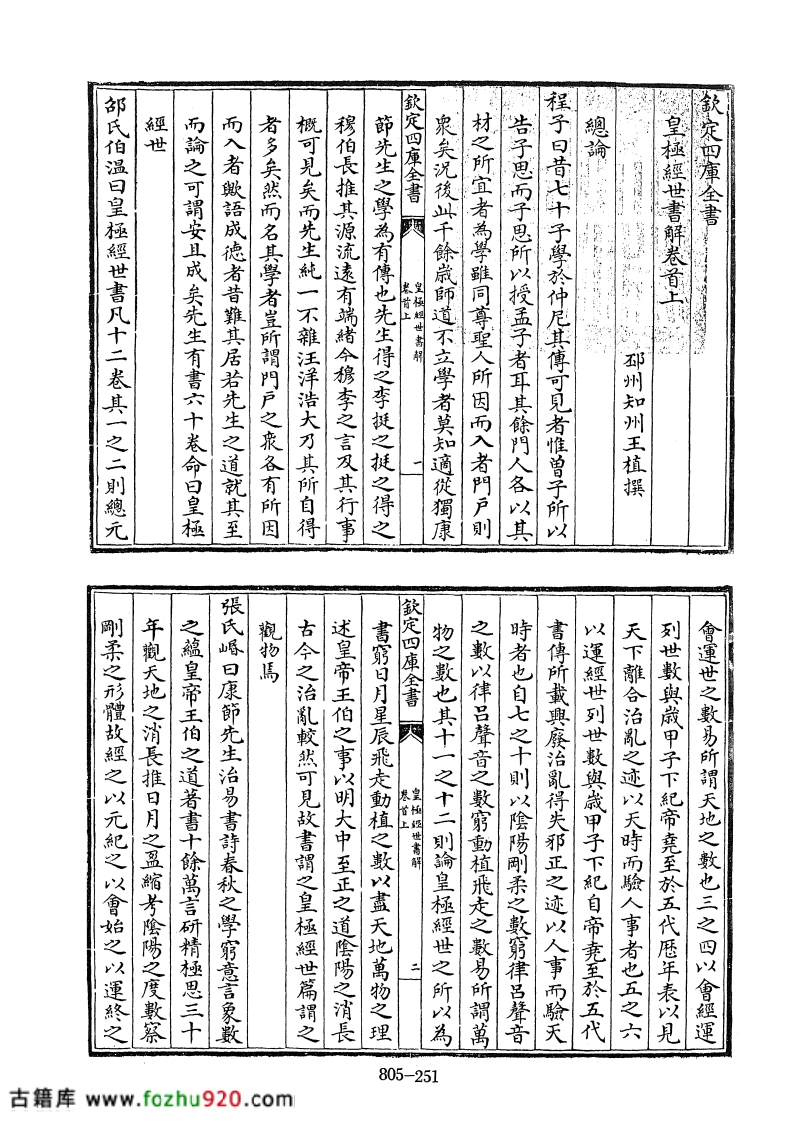 欽定四庫全書
皇極經世書解卷首上
邳州知州王植撰
總論
程子曰昔七十子學於仲尼其傳可見者惟曽子所以
告子思而子思所以授孟子者耳其餘門人各以其
材之所宜者為學雖同尊聖人所因而入者門戸則
衆矣況後此千餘歲師道不立學者莫知適從獨康
欽定四庫全書
皇極經世書解
卷首上
一
節先生之學為有傳也先生得之李挺之挺之得之
穆伯長推其源流遠有端緒今穆李之言及其行事
概可見矣而先生純一不雜汪洋浩大乃其所自得
者多矣然而名其學者豈所謂門戸之衆各有所因
而入者歟語成德者昔難其居若先生之道就其至
而論之可謂安且成矣先生有書六十卷命曰皇極
經世
邵氏伯温曰皇極經世書凡十二卷其一之二則總元
會運世之數易所謂天地之數也三之四以會經運
列世數與歲甲子下紀帝堯至於五代厯年表以見
天下離合治亂之迹以天時而驗人事者也五之六
以運經世列世數與歲甲子下紀自帝堯至於五代
書傳所載興廢治亂得失邪正之迹以人事而驗天
時者也自七之十則以陰陽剛柔之數窮律吕聲音
之數以律吕聲音之數窮動植飛走之數易所謂萬
物之數也其十一之十二則論皇極經世之所以為
欽定四庫全書
皇極經世書解
卷首上
二
書窮日月星辰飛走動植之數以盡天地萬物之理
述皇帝王伯之事以明大中至正之道陰陽之消長
古今之治亂較然可見故書謂之皇極經世篇謂之
觀物焉
張氏㟭曰康節先生治易書詩春秋之學窮意言象數
之藴皇帝王伯之道著書十餘萬言研精極思三十
年觀天地之消長推日月之盈縮考陰陽之度數察
剛柔之形體故經之以元紀之以會始之以運終之
805-251
古籍库 www.fozhu920.com